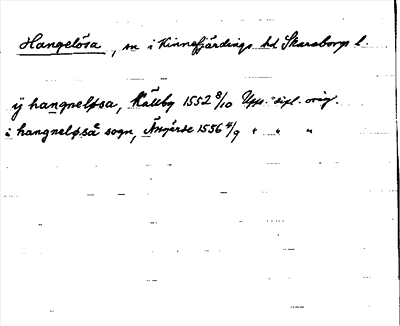 Hangelösa, sn i Kinnefjärdings hd Skaraborgs l.
ÿ hangneløsa, Källby 1552 8/10 Upps. dipl. orig.
i hangneløså sogn, 1556 4/9 " " "